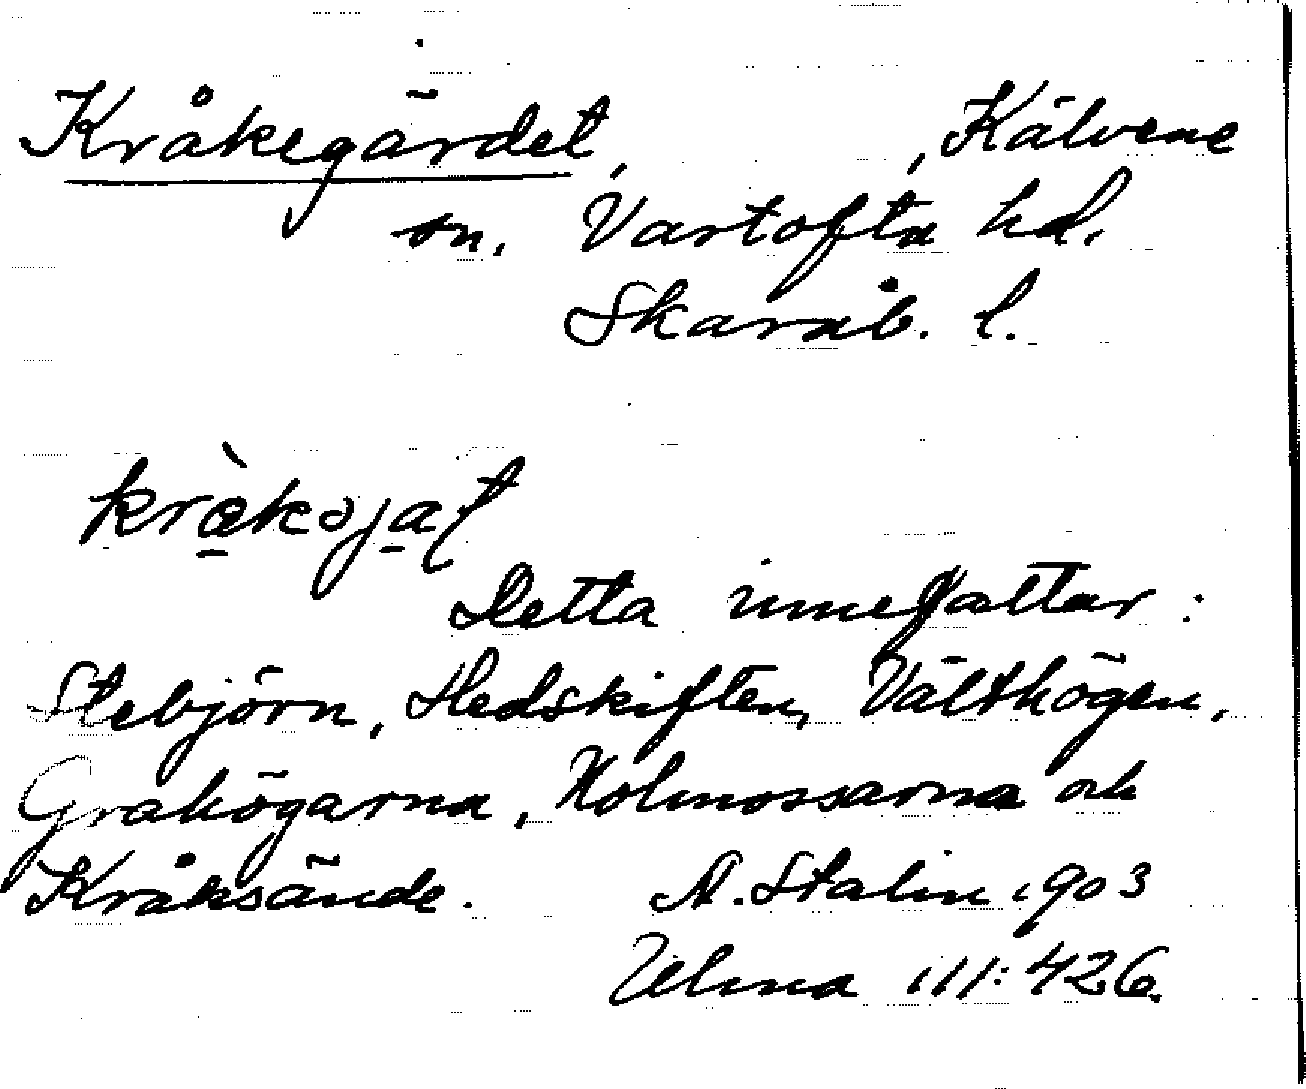 Kråkegärdet, , Kälvene
sn. Vartofta hd.
Skarab. l.
kràkəjat
Detta innefattar :
Stebjörn, Hedskiften, Välthögen,
Gråhögarna, Holmossarna och
Kråksände. A. Stalin 1903
Ulma 111:426.